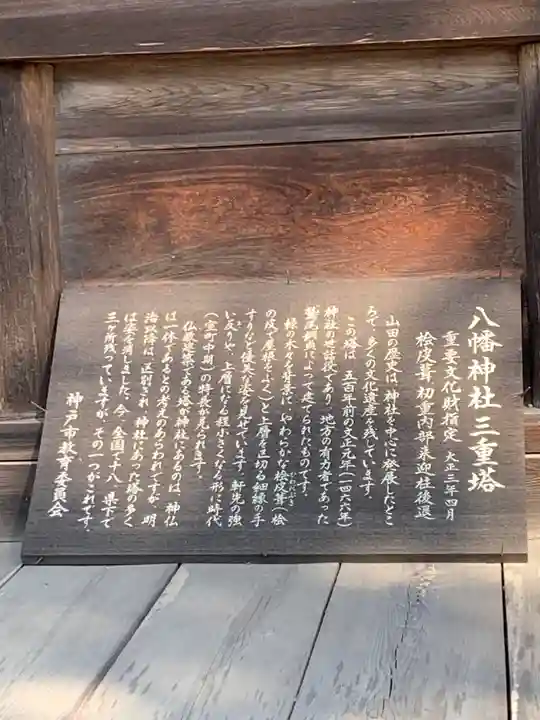 八幡神社三重塔
重要文化財指定 大正三年四月
桧皮葺 初重内部 来迎柱後退
山田の歴史は、神社を中心に発展したとこ
ろで、多くの文化遺産を残しています。
この塔は、五百年前の文正元年(一四六六年)
神社の世話役であり、地方の有力者であった
鷲尾綱貞によって建てられたものです。
緑の木々を背景に、やわらかな桧皮葺(桧
ひわだぶき
の皮で屋根をふく)と上層を区切る細線の手
すりなど優美な姿を見せています。軒先の強
い反りや、上層になる程小さくなる形に時代
(室町中期)の特長が見られます。
仏教建築である塔が神社にあるのは、神仏
は一体であるとの考えのあらわれですが、明
治以降は区別され、神社にあった塔の多く
は姿を消しました。今、全国で十八、県下で
三ヶ所残っていますが、その一つがこれです。
神戸市教育委員会